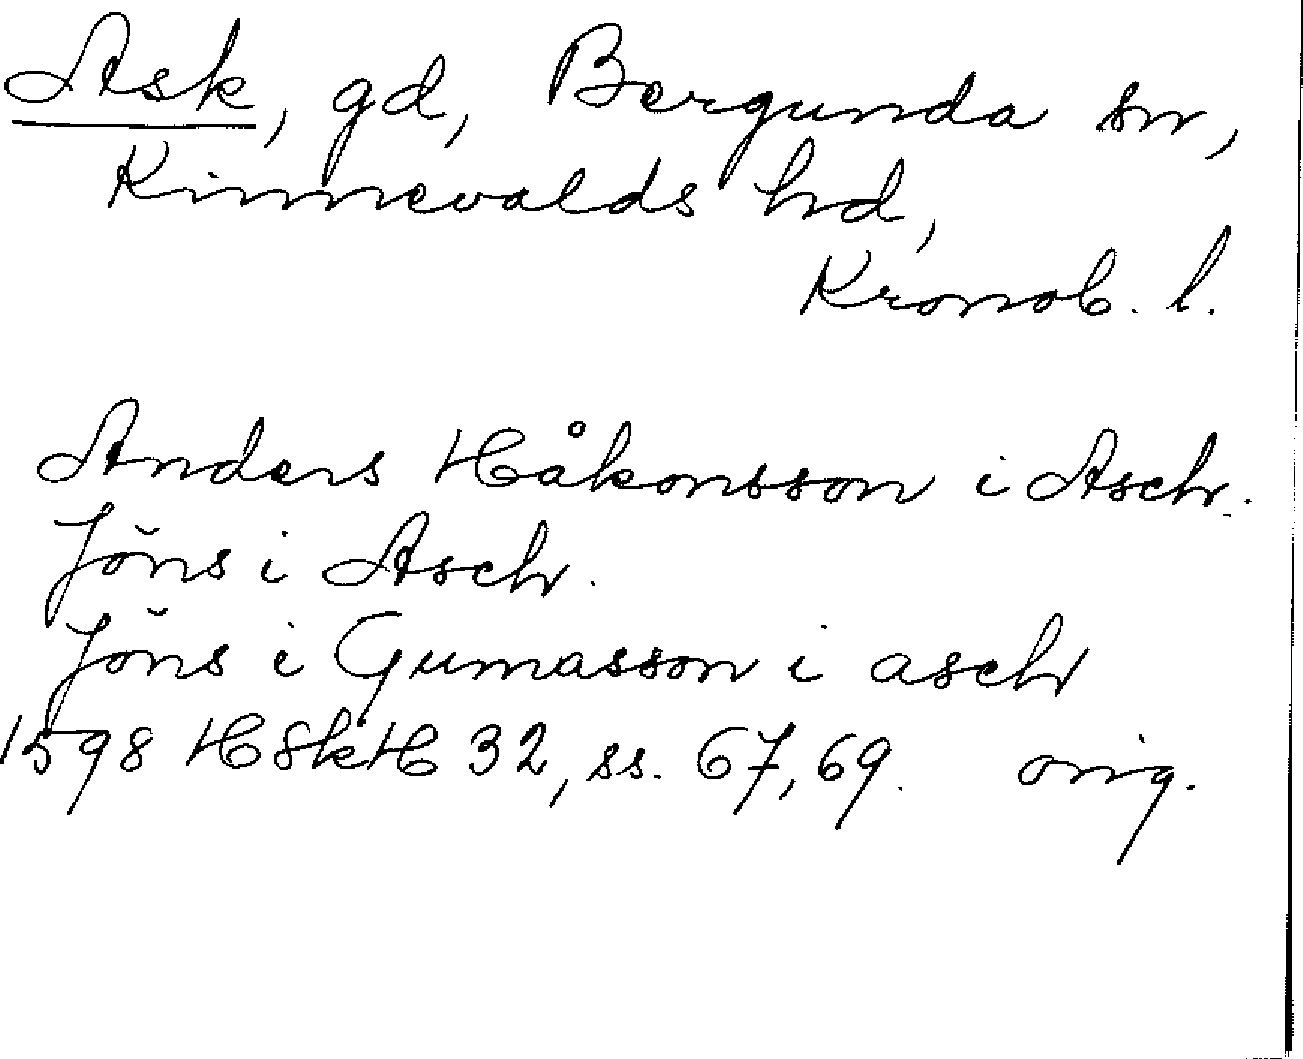 Ask, gd, Bergunda sn,
Kinnevalds hd,
Kronob. l.
Anders Håkonsson i Asch.
Jöns i Asch.
Jöns i Gumasson i asch
1598 HSkH 32, ss. 67, 69. orig.